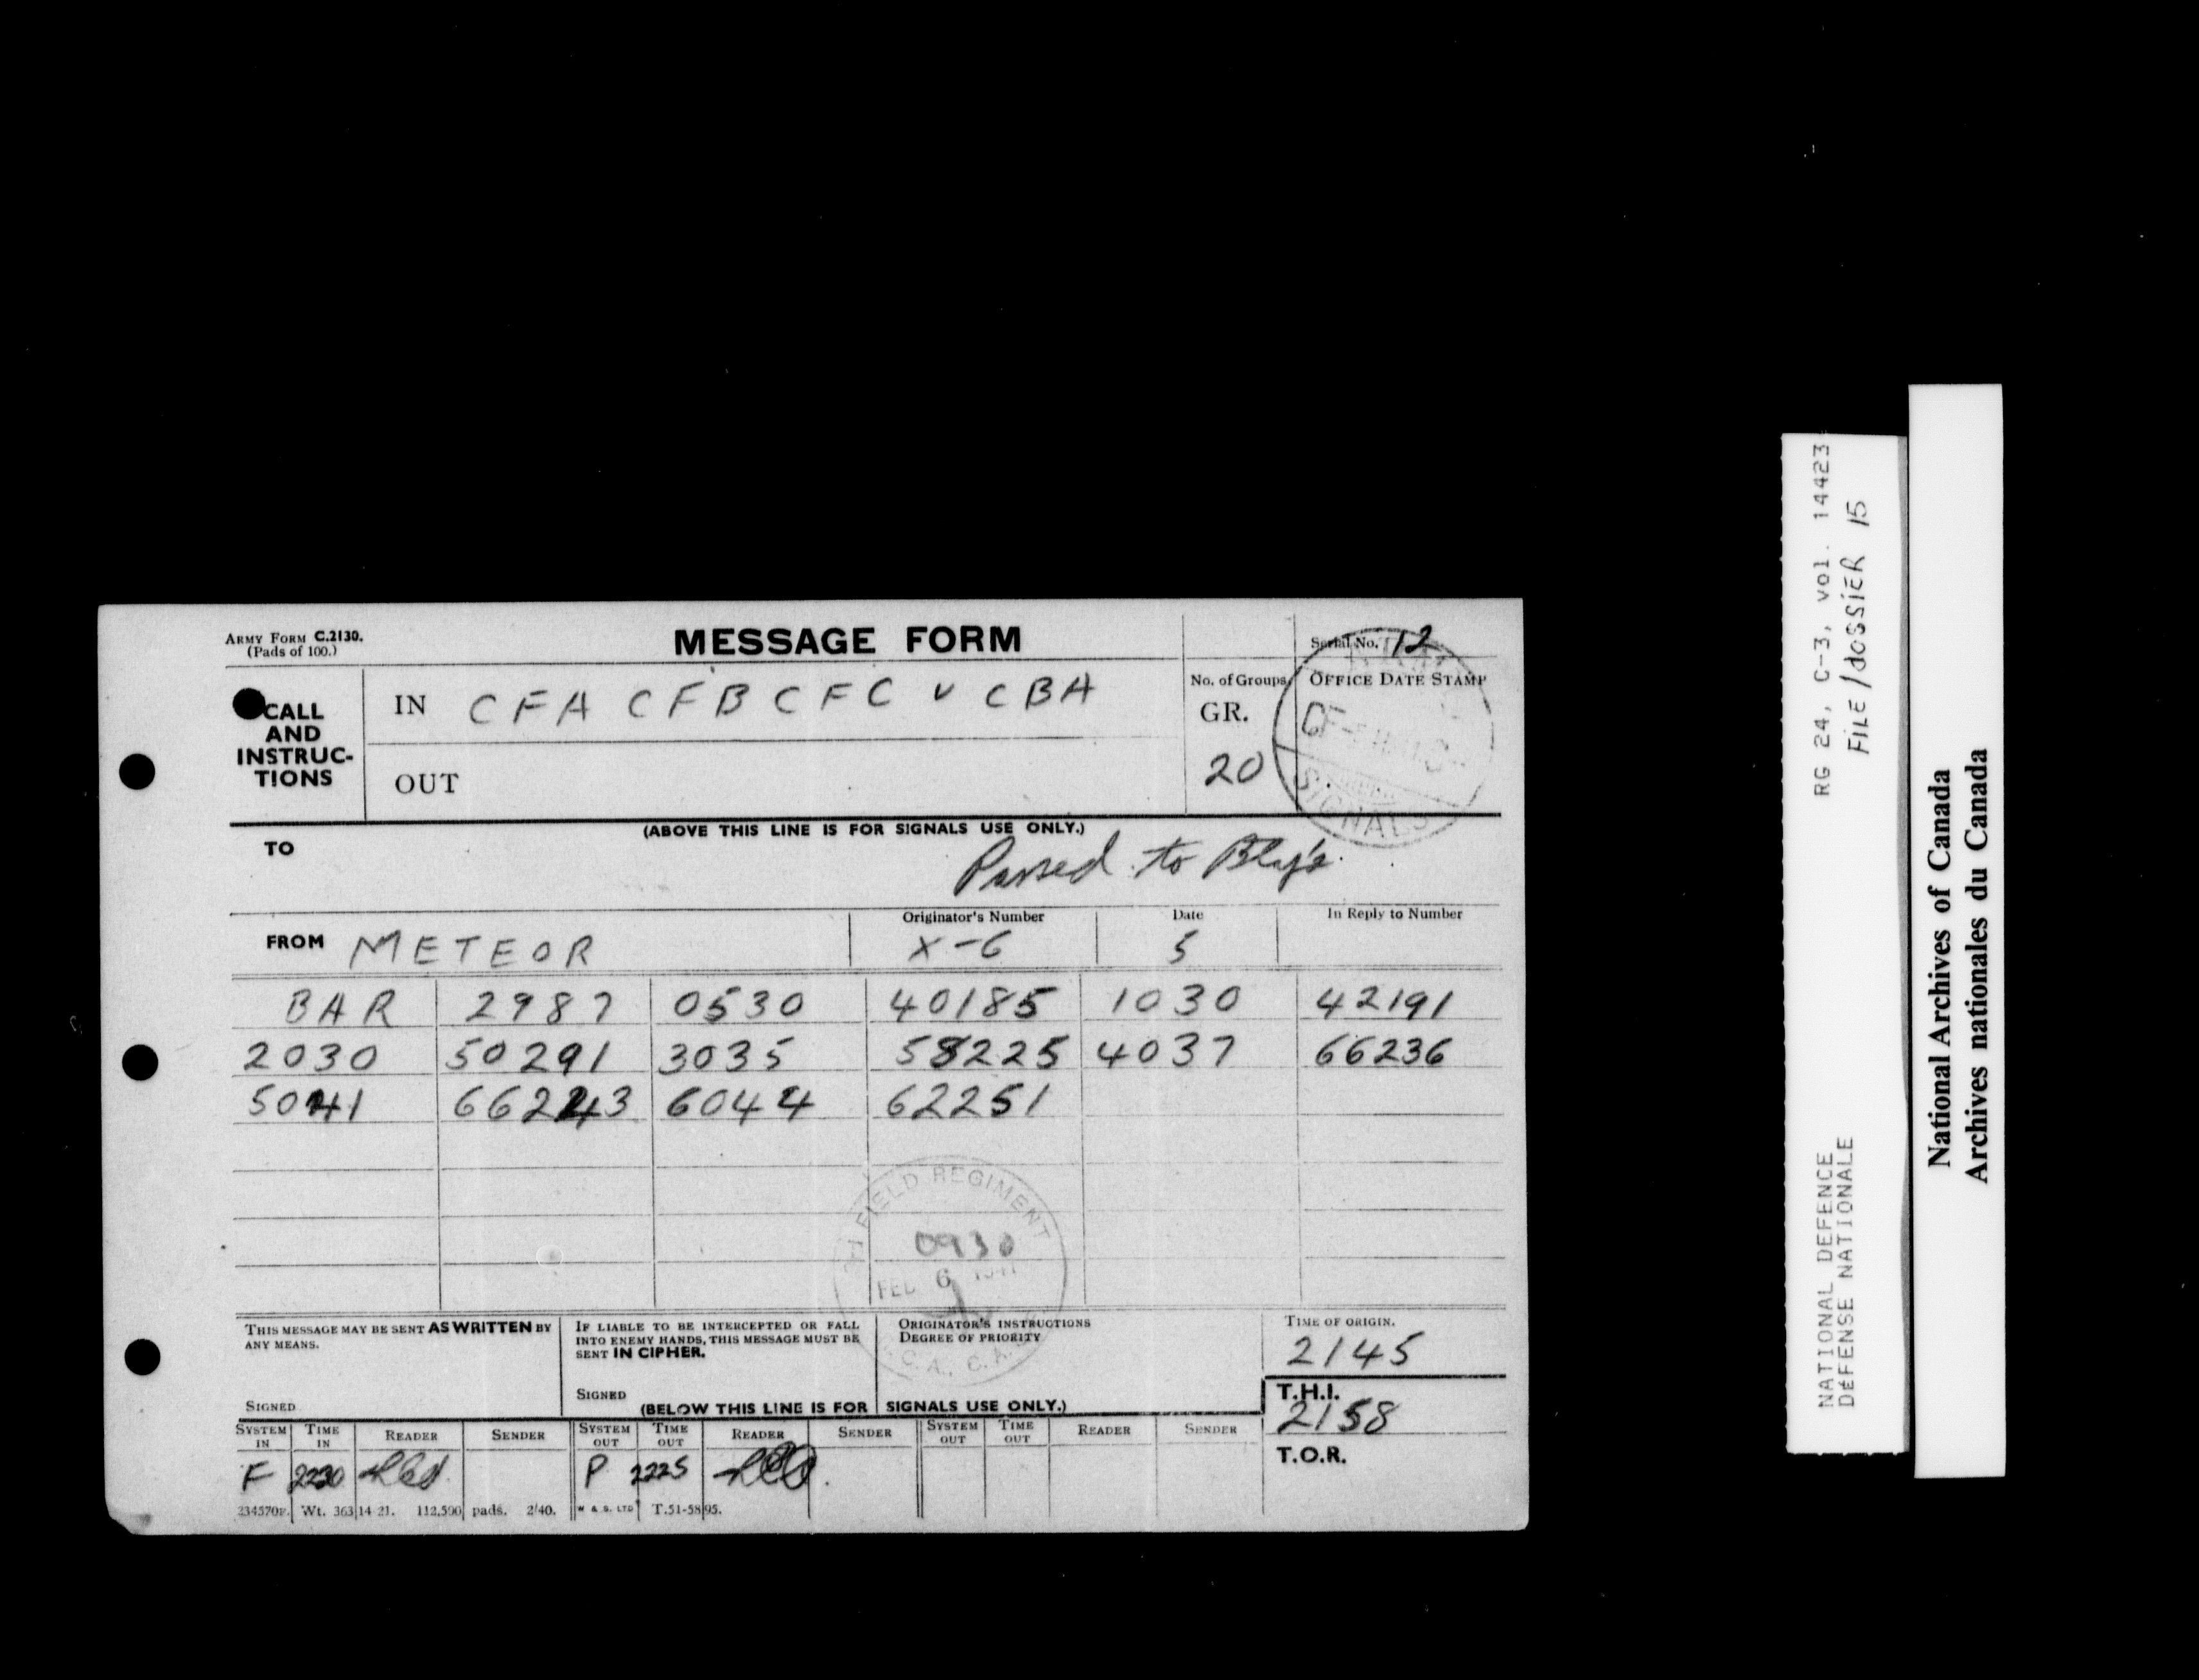 ARMY FORM C.2130.
(Pads of 100.)
MESSAGE FORM
Serial No. 12
CALL AND INSTRUC-TIONS
IN CFA CFB CFC v CBA
No. of Groups
GR.
20
OFFICE DATE STAMP
SIGNALS
OUT
(ABOVE THIS LINE IS FOR SIGNALS USE ONLY.)
TO
Passed to
FROM METEOR
Originator's Number
X-6
Date
5
In Reply to Number
BAR 2987 0530 40185 1030 42191
2030 50291 3035 58225 4037 66236
5041 66243 6044 62251
FIELD REGIMENT
0930
FEB 6
THIS MESSAGE MAY BE SENT AS WRITTEN BY
ANY MEANS.
SIGNED
IF LIABLE TO BE INTERCEPTED OR FALL
INTO ENEMY HANDS, THIS MESSAGE MUST BE
SENT IN CIPHER.
SIGNED
ORIGINATOR'S INSTRUCTIONS
DEGREE OF PRIORITY
TIME OF ORIGIN.
2145
T.H.I.
2158
T.O.R.
(BELOW THIS LINE IS FOR SIGNALS USE ONLY.)
SYSTEM IN TIME IN READER SENDER SYSTEM OUT TIME OUT READER SENDER SYSTEM OUT TIME OUT READER SENDER
F 2230 P 2225
234570F. Wt. 36314 21. 112,500 pads. 2/40. W & S. LTD T.51-5895.
RG 24, C-3, vol. 14423
FILE/dOSSIER 15
NATIONAL DEFENCE
DÉFENSE NATIONALE
National Archives of Canada
Archives nationales du Canada